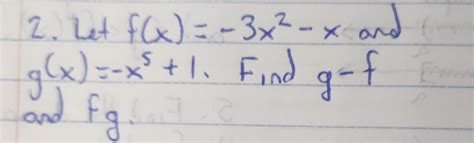 2. Let f(x) = -3x² - x and
g(x)=-x⁵ + 1. Find g-f
and fg.